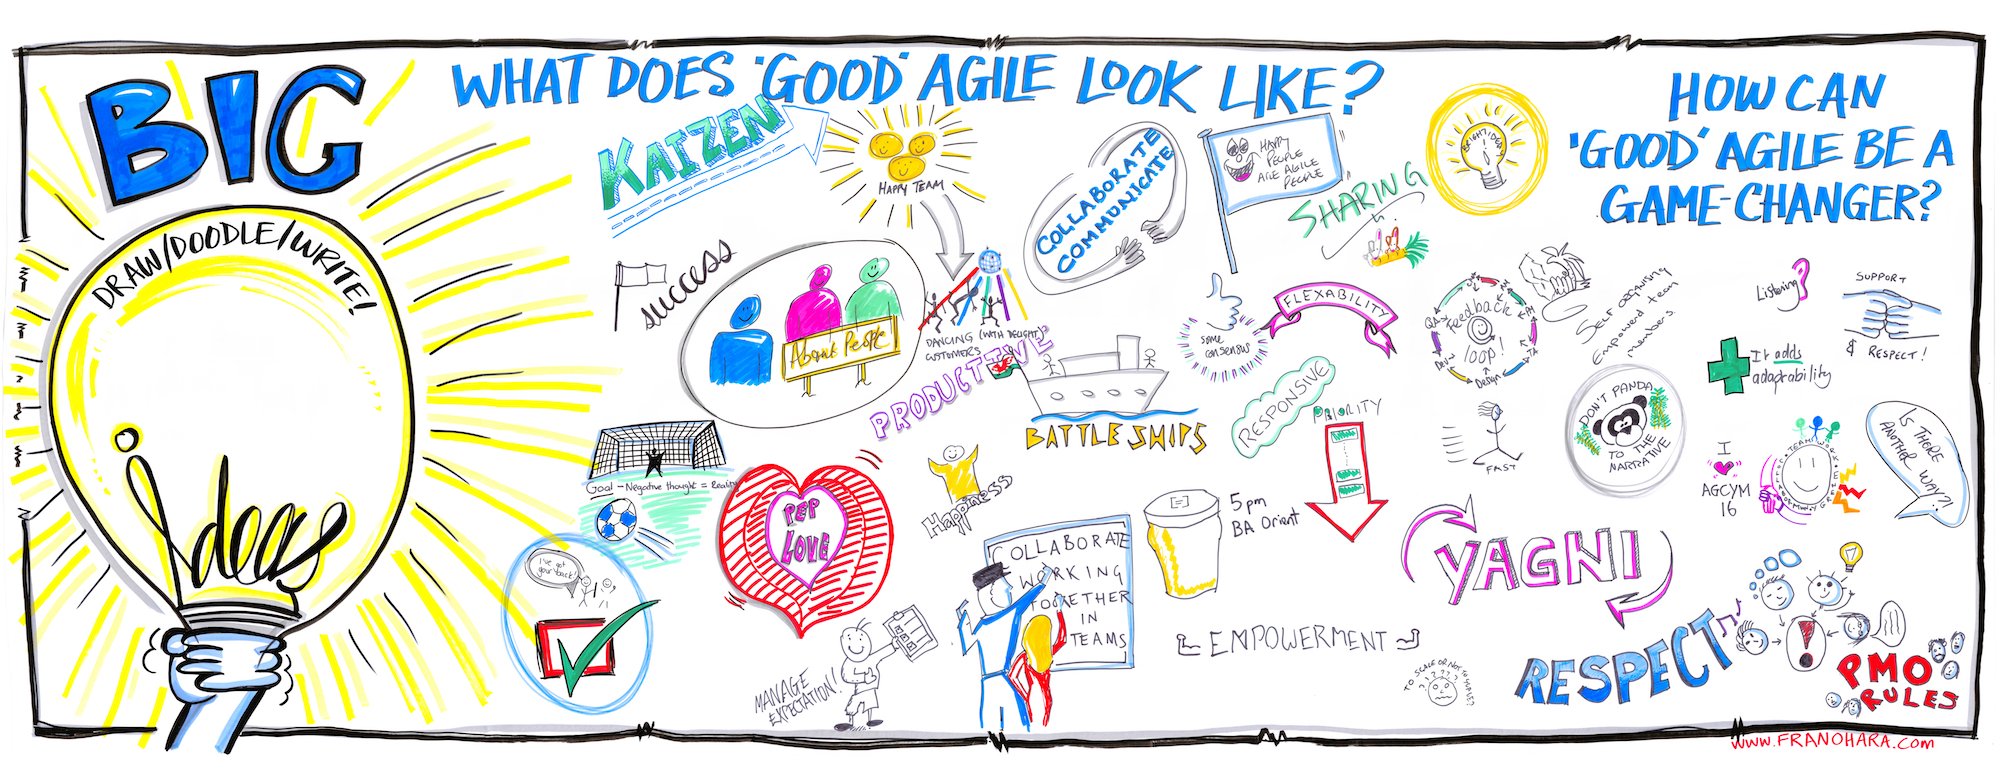 BIG
DRAW/DOODLE/WRITE!
ideas
WHAT DOES 'GOOD' AGILE LOOK LIKE?
KAIZEN
HAPPY TEAM
success
About People
DANCING (WITH DELIGHT)
CUSTOMERS
PRODUCTIVE
COLLABORATE
COMMUNICATE
HAPPY
PEOPLE
ARE AGILE
PEOPLE
SHARING
BRIGHT IDEA
some
consensus
FLEXABILITY
BATTLE SHIPS
RESPONSIVE
PRIORITY
Goal - Negative thought = Reality
I've got
your back!
PEP
LOVE
Happiness
MANAGE
EXPECTATION!
COLLABORATE
WORKING
TOGETHER
IN
TEAMS
5pm
BA Orient
EMPOWERMENT
HOW CAN
'GOOD' AGILE BE A
GAME-CHANGER?
Feedback
loop!
QA
PM
Dev
Design
Self organising
Empowered team
members
Listening
SUPPORT
& RESPECT!
It adds
adaptability
DON'T PANDA
TO THE
NARRATIVE
FAST
I
AGCYM
16
TEAM WORK
IS THERE
ANOTHER
WAY?!
YAGNI
RESPECT
TO SCALE OR NOT TO SCALE?
? ? ? ? ?
!
PMO
RULES
WWW.FRANOHARA.COM